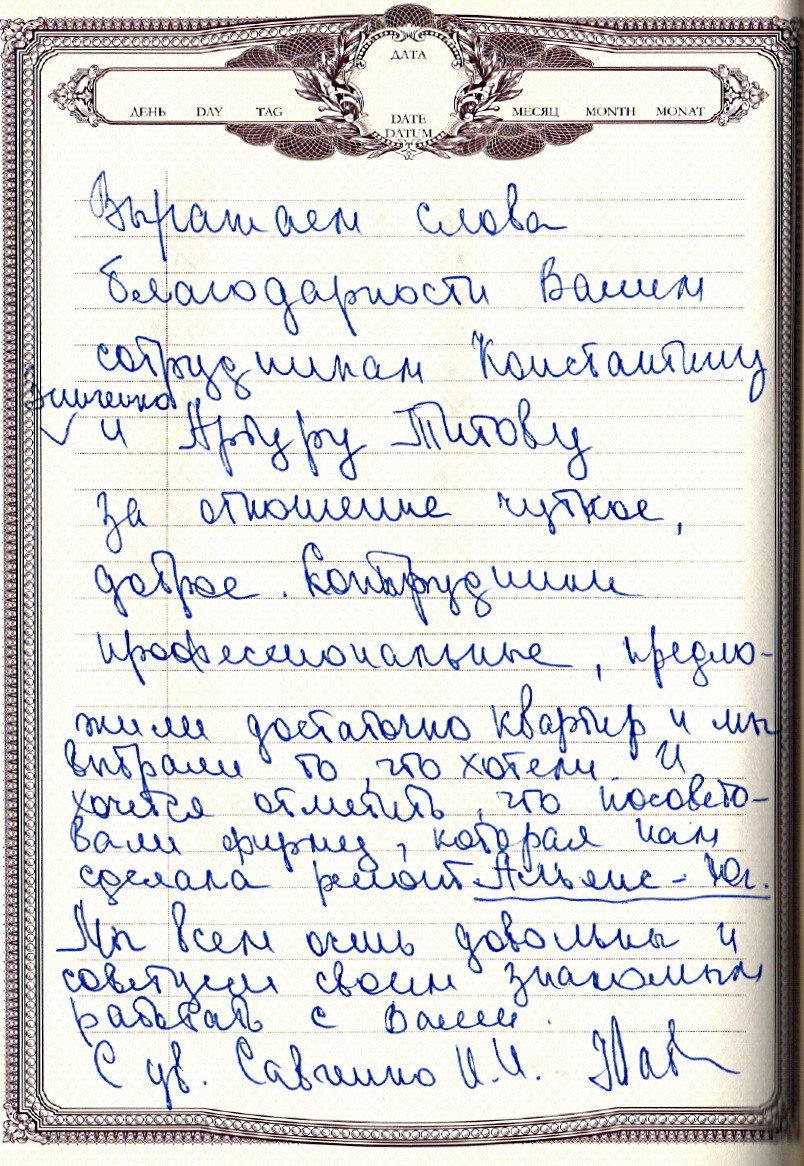 ДАТА
ДЕНЬ DAY TAG
DATE
DATUM
МЕСЯЦ MONTH MONAT
Выражаем слова
благодарности Вашим
сотрудникам Константину
Зинченко
и Артуру Титову
за отношение чуткое,
доброе. Сотрудники
профессиональные, предло-
жили достаточно квартир и мы
выбрали то, что хотели. И
хочется отметить, что посовето-
вали фирму, которая нам
сделала ремонт Альянс-Юг.
Мы всем очень довольны и
советуем своим знакомым
работать с Вами.
С ув. Савченко И.И.